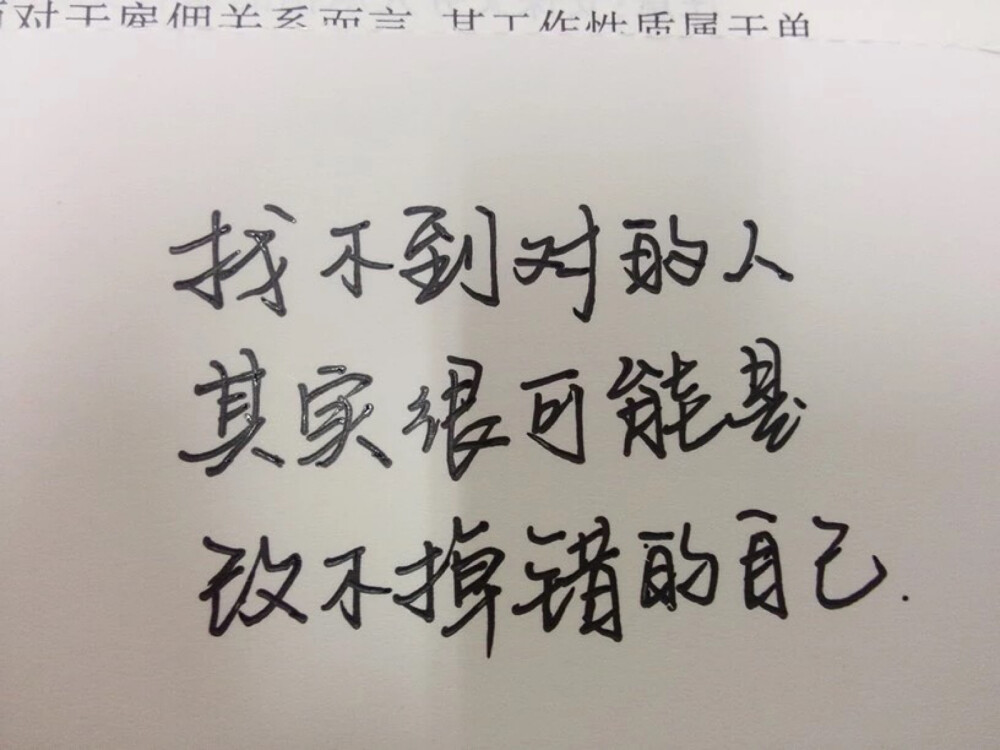 而对于雇佣关系而言,其工作性质属于单
找不到对的人
其实很可能是
改不掉错的自己.